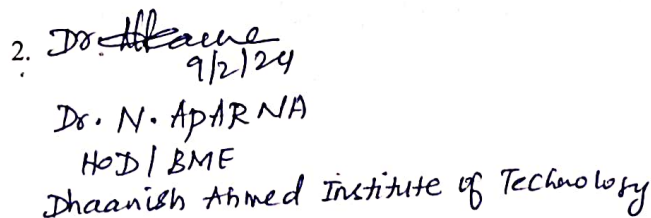 2. Dr.
9/2/24
Dr. N. APARNA
HOD / BME
Dhaanish Ahmed Institute of Technology